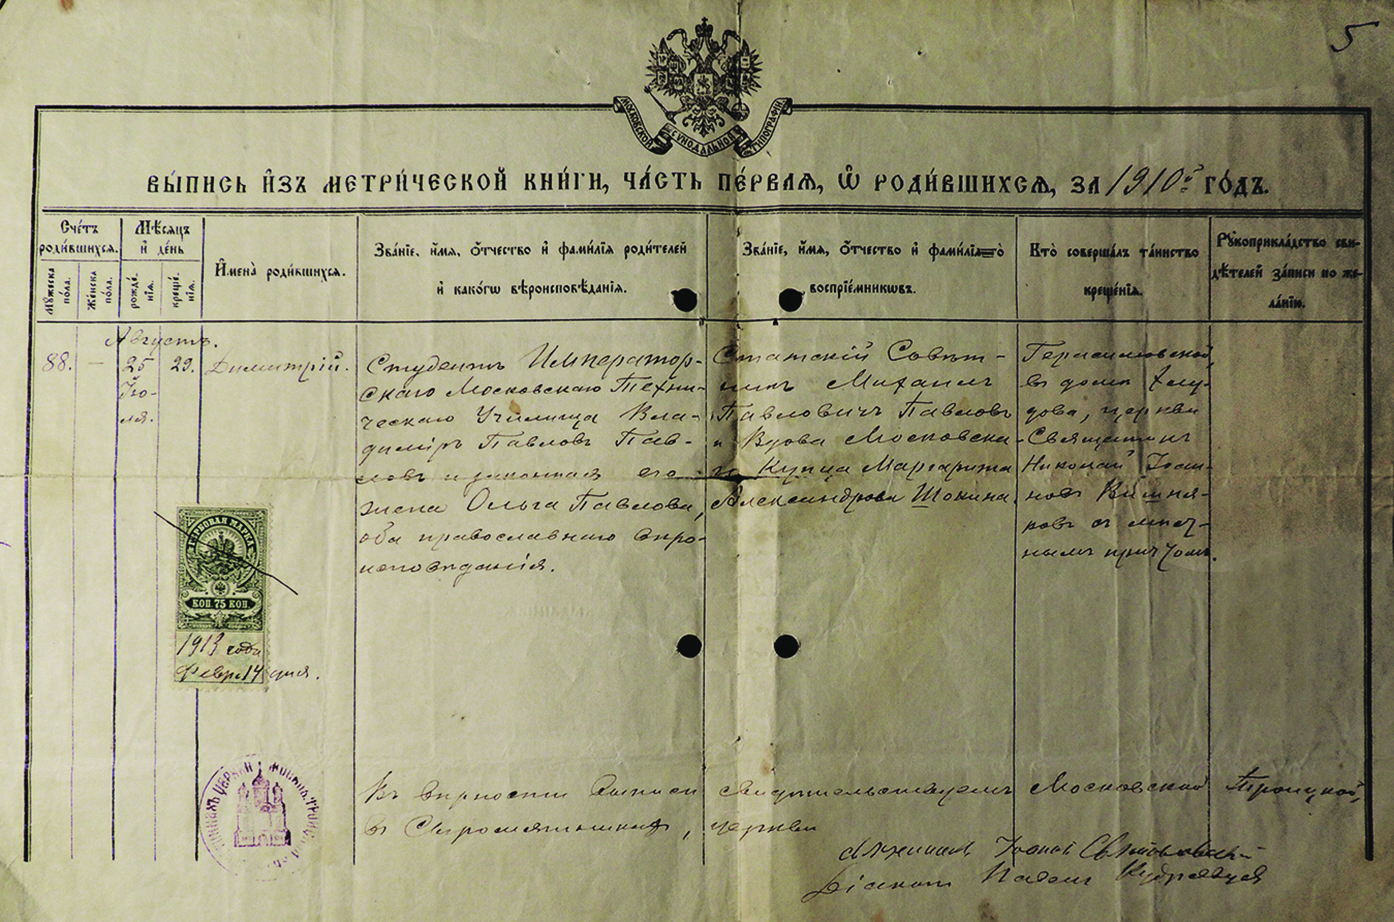 5
МОСКОВСКОЙ СѴНОДАЛЬНОЙ ТИПОГРАФИИ
ВЫ́ПИСЬ И҆ЗЪ МЕТРИ́ЧЕСКОЙ КНИ́ГИ, ЧА́СТЬ ПЕ́РВАЯ, Ѽ РОДИ́ВШИХСЯ, ЗА 1910й ГО́ДЪ.
Сче́тъ роди́вшихся.
Мѣ́сяцъ и҆ де́нь
И҆мена̀ роди́вшихся.
Зва́нїе, и҆́мя, ѻ҆́тчество и҆ фами́лїя роди́телей
и҆ како́гѡ вѣроисповѣ́данїя.
Зва́нїе, и҆́мя, ѻ҆́тчество и҆ фами́лїя
воспрїе́мникѡвъ.
Кто̀ соверша́лъ та́инство
креще́нїя.
Рꙋкоприкла́дство сви-
дѣ́телей за́писи по же-
ла́нїю.
Мꙋ́жеска по́ла.
Же́нска по́ла.
рожде́нїя.
креще́нїя.
Августъ.
88. — 25 29. Димитрій.
Iю-
ля.
Студентъ Император-
скаго Московскаго Техни-
ческаго Училища Вла-
диміръ Павловъ Пав-
ловъ и законная его
жена Ольга Павлова,
оба православнаго вѣро-
исповѣданія.
Статскій Совѣт-
никъ Михаилъ
Павловичъ Павловъ
и Вдова Московска-
го Купца Маргарита
Александрова Шокина.
Герасимовской,
въ домѣ Хлу-
дова, церкви
Священникъ
Николай Іоан-
новъ
съ мѣст-
нымъ причтомъ.
ГЕРБОВАЯ МАРКА
КОП. 75 КОП.
1913 года
Февр. 14 дня.
Въ вѣрности выписи свидѣтельствуемъ Московской Троицкой,
въ Сыромятникахъ, церкви
Священникъ Іоаннъ
Діаконъ Павелъ Кудрявцев